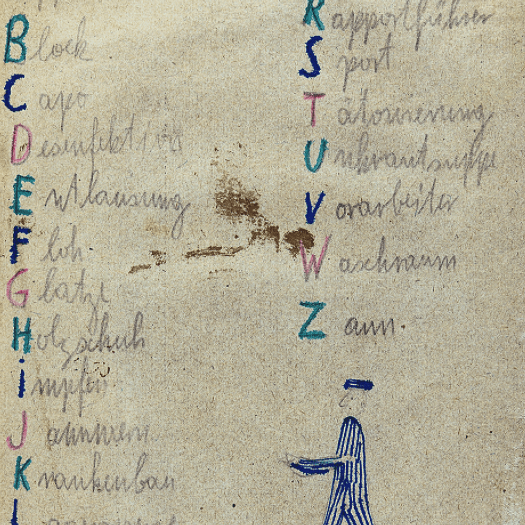 Block
Capo
Desinfektion
Entlausung
Floh
Glatze
Holzschuh
Impfen
Jammern
Krankenbau
L
Rapportführer
Sport
Tätowierung
Unkrautsuppe
Vorarbeiter
Waschraum
Zaun.